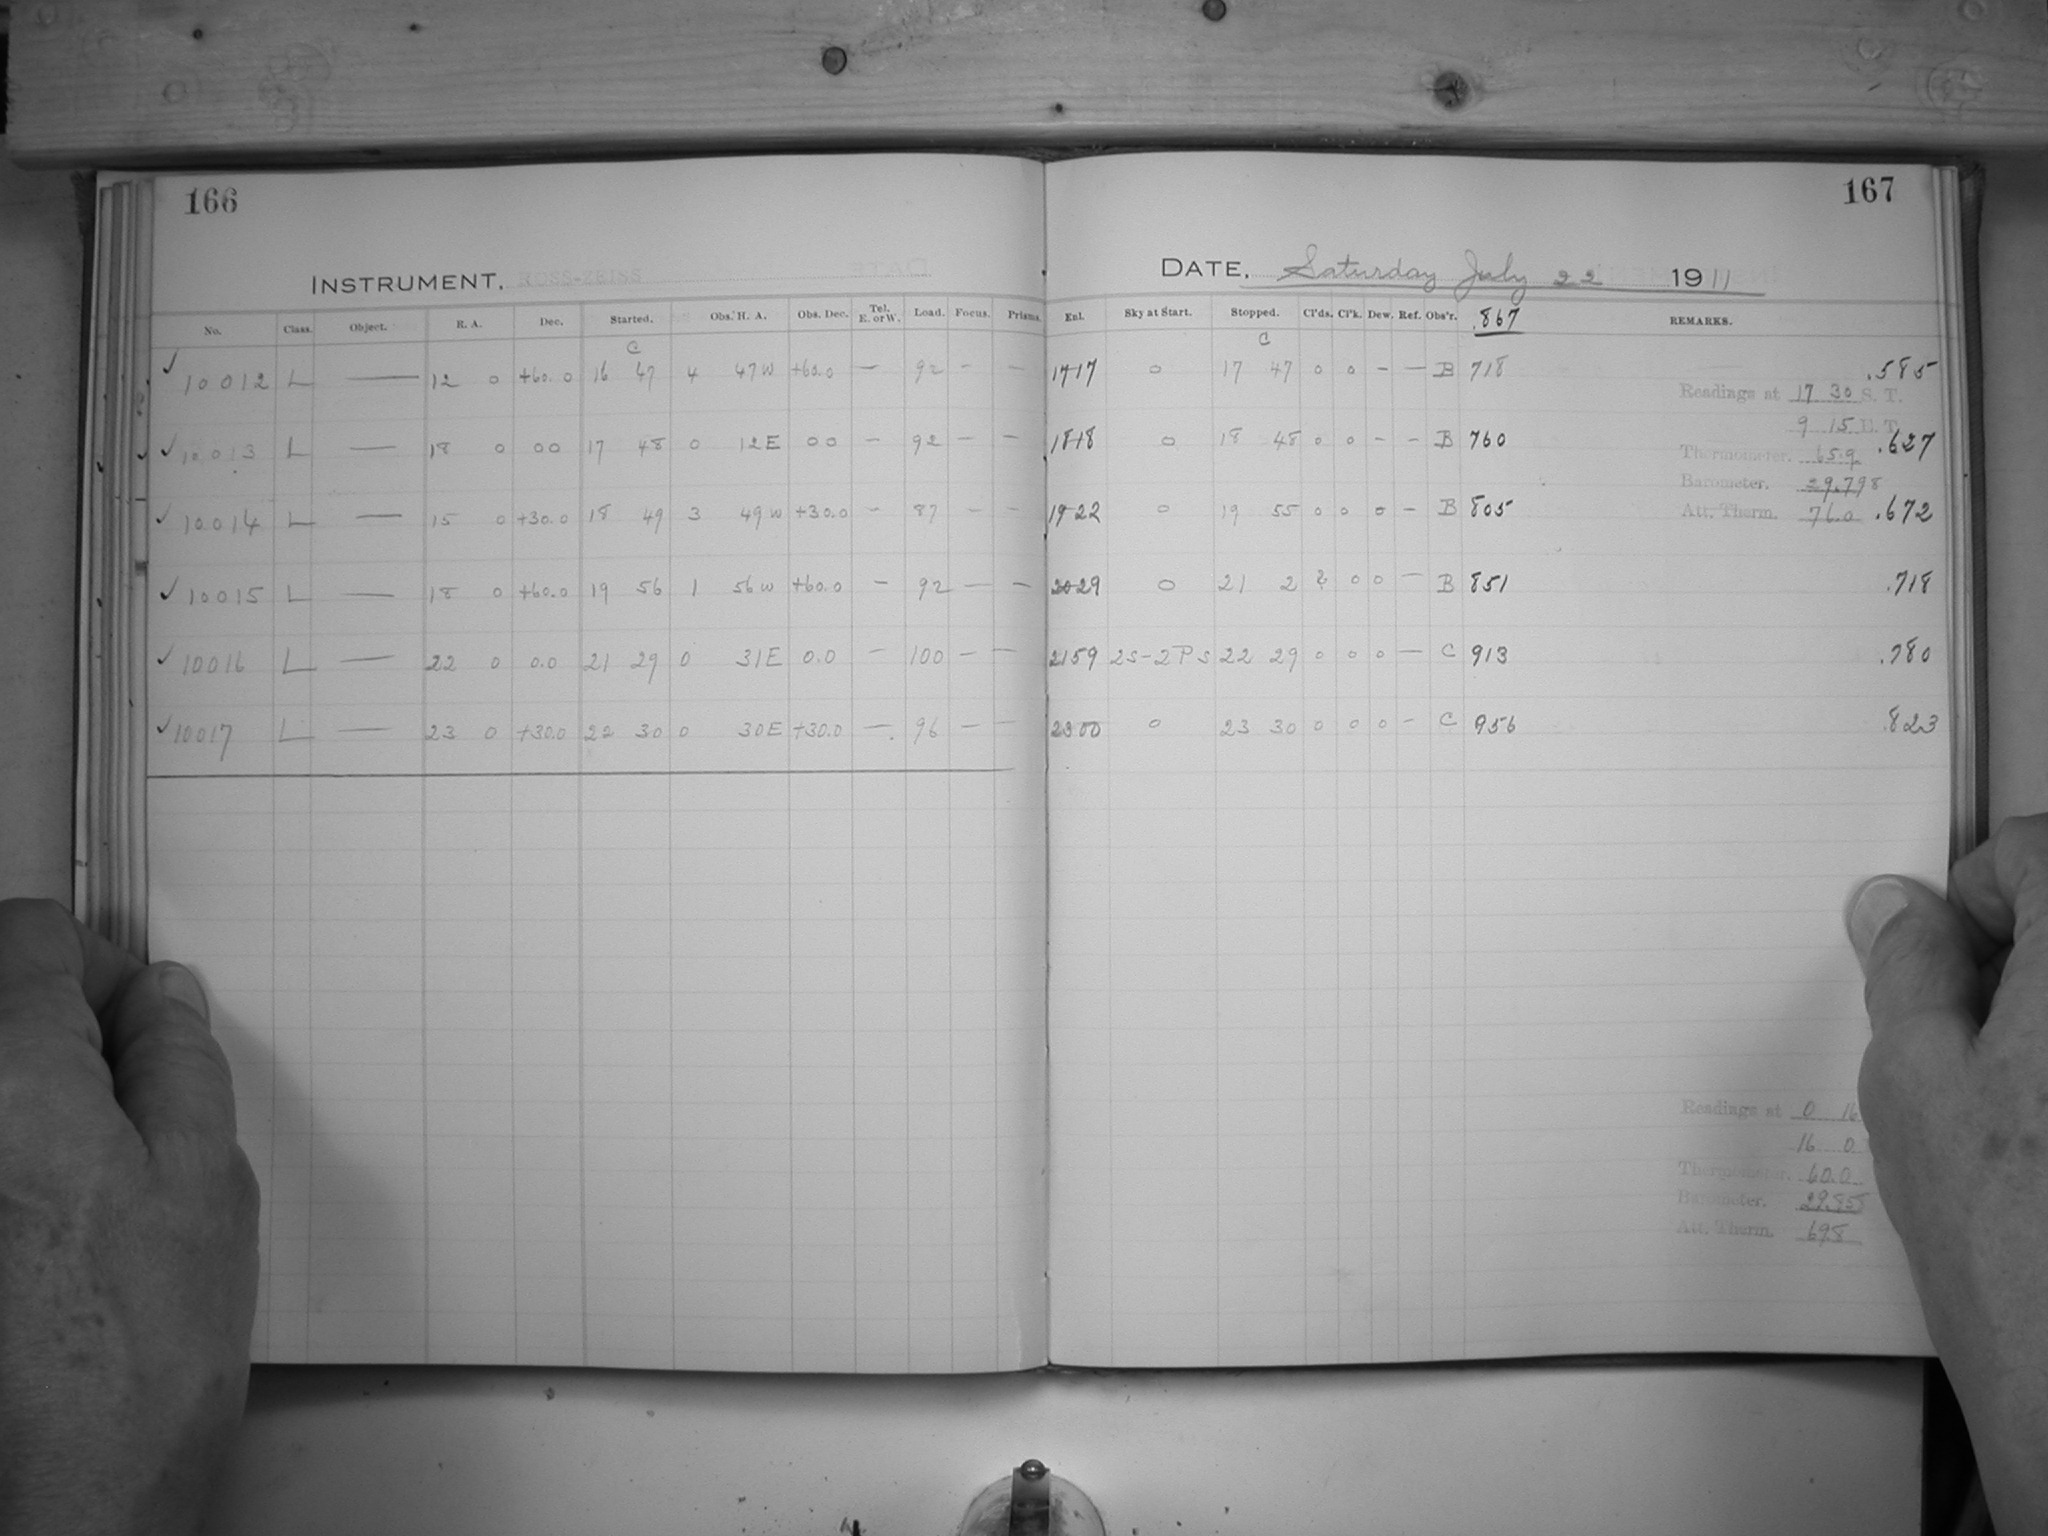 166
INSTRUMENT. ROSS-ZEISS
No. Class. Object. R. A. Dec. Started. Obs. H. A. Obs. Dec. Tel. E. or W. Load. Focus. Prisms.
C
10012 L — 12 0 +60.0 16 47 4 47W +60.0 — 92 — —
10013 L — 18 0 00 17 48 0 12E 00 — 92 — —
10014 L — 15 0 +30.0 18 49 3 49W +30.0 — 87 — —
10015 L — 18 0 +60.0 19 56 1 56W +60.0 — 92 — —
10016 L — 22 0 0.0 21 29 0 31E 0.0 — 100 — —
10017 L — 23 0 +30.0 22 30 0 30E +30.0 — 96 — —
167
DATE, Saturday July 22 1911
Enl. Sky at Start. Stopped. Cl'ds. Cl'k. Dew. Ref. Obs'r. .867 REMARKS.
C
17 17 0 17 47 0 0 — — B 718 .585
Readings at 17 30 S. T.
9 15 E. T.
18 18 0 18 48 0 0 — — B 760 .627
Thermometer. 65.9
Barometer. 29.798
19 22 0 19 55 0 0 0 — B 805 .672
Att. Therm. 76.0
20 29 0 21 2 2 0 0 — B 851 .718
21 59 2s-2Ps 22 29 0 0 0 — C 913 .780
23 00 0 23 30 0 0 0 — C 956 .823
Readings at 0 16
16 0
Thermometer. 60.0
Barometer. 29.855
Att. Therm. 69.8